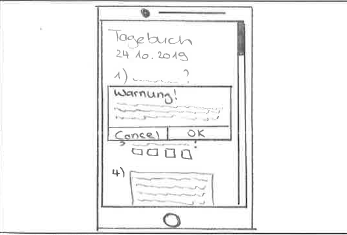 Tagebuch
24.10.2019
1) ?
Warnung!
Cancel | OK
4)